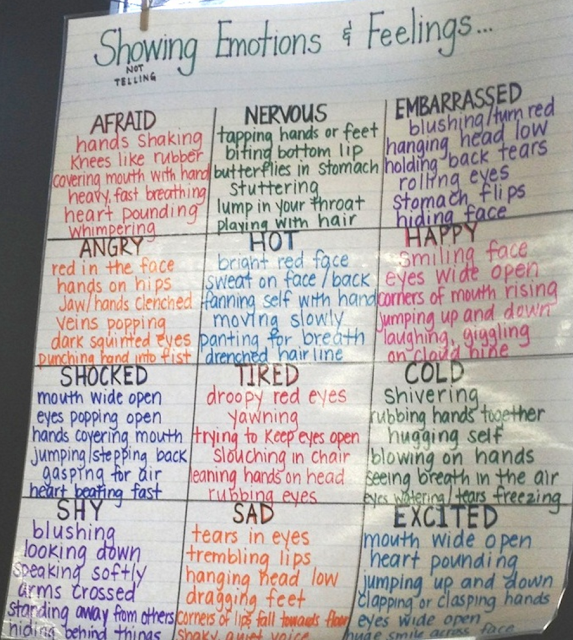 Showing Emotions & Feelings...
NOT
TELLING
AFRAID
hands shaking
Knees like rubber
covering mouth with hand
heavy, fast breathing
heart pounding
whimpering
NERVOUS
tapping hands or feet
biting bottom lip
butterflies in stomach
stuttering
lump in your throat
playing with hair
EMBARRASSED
blushing/turn red
hanging head low
holding back tears
rolling eyes
stomach flips
hiding face
ANGRY
red in the face
hands on hips
Jaw/hands clenched
veins popping
dark squinted eyes
punching hand into fist
HOT
bright red face
sweat on face/back
fanning self with hand
moving slowly
panting for breath
drenched hairline
HAPPY
smiling face
eyes wide open
corners of mouth rising
jumping up and down
laughing, giggling
on cloud nine
SHOCKED
mouth wide open
eyes popping open
hands covering mouth
jumping/stepping back
gasping for air
heart beating fast
TIRED
droopy red eyes
yawning
trying to keep eyes open
slouching in chair
leaning hands on head
rubbing eyes
COLD
shivering
rubbing hands together
hugging self
blowing on hands
seeing breath in the air
eyes watering/tears freezing
SHY
blushing
looking down
speaking softly
arms crossed
standing away from others
hiding behind things
SAD
tears in eyes
trembling lips
hanging head low
dragging feet
corners of lips fall towards floor
shaky, quiet voice
EXCITED
mouth wide open
heart pounding
jumping up and down
clapping or clasping hands
eyes wide open
huge smile face